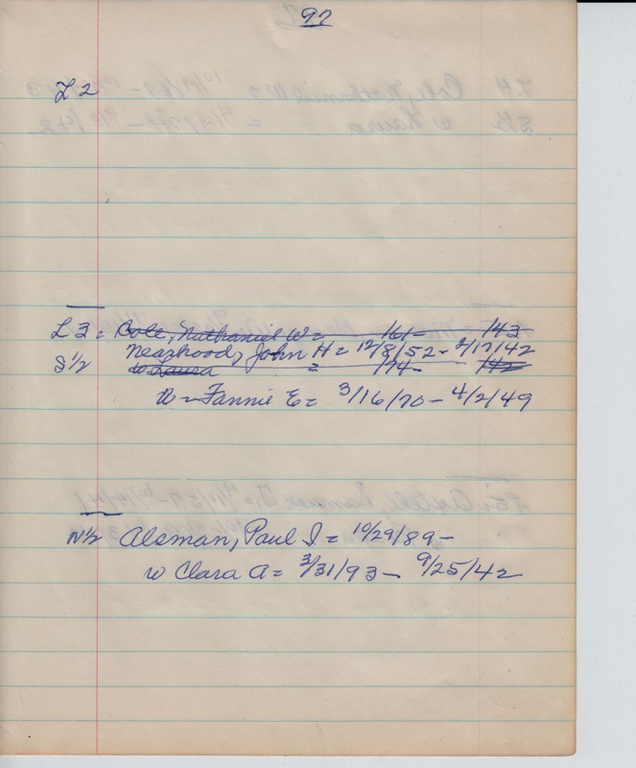 97
L 2
L 3 = Cole, Nathaniel W = /61 - /43
Neazhood, John H = 12/8/52 - 2/17/42
S 1/2 w Laura = /74 - /42
W = Fannie E = 3/16/70 - 4/2/49
N 1/2 Alsman, Paul I = 10/29/89 -
w Clara A = 3/31/93 - 9/25/42